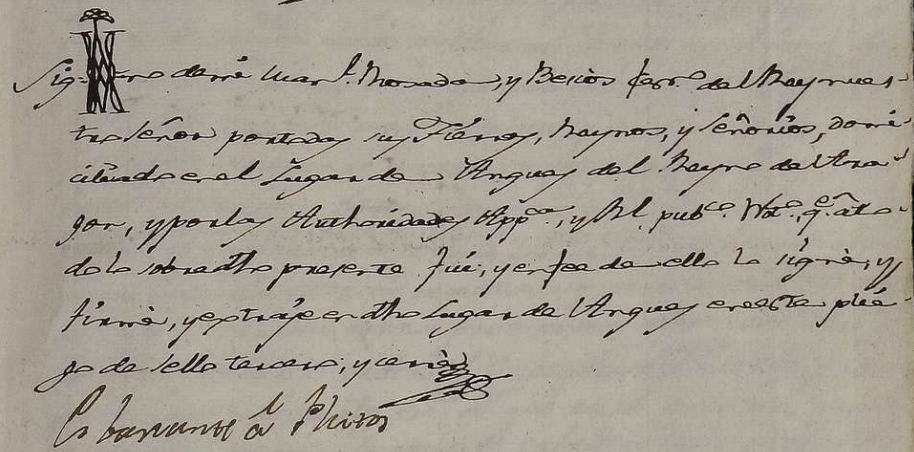 Sig-no de mi Man.l Posada, y Berios Ess.no del Rey nues-
tro Señor por todas sus Tierras, Reynos, y Señorios, domi-
ciliado en el Lugar de Angues del Reyno de Ara-
gon, y por las Authoridades App.ca, y Rl. pub.co Not.o q.e a to-
do lo sobre dho presente fúi, y en fee de ello lo signè, y
firmè, y extraje en dho Lugar de Angues en este plie-
go de sello tercero; y cerrè